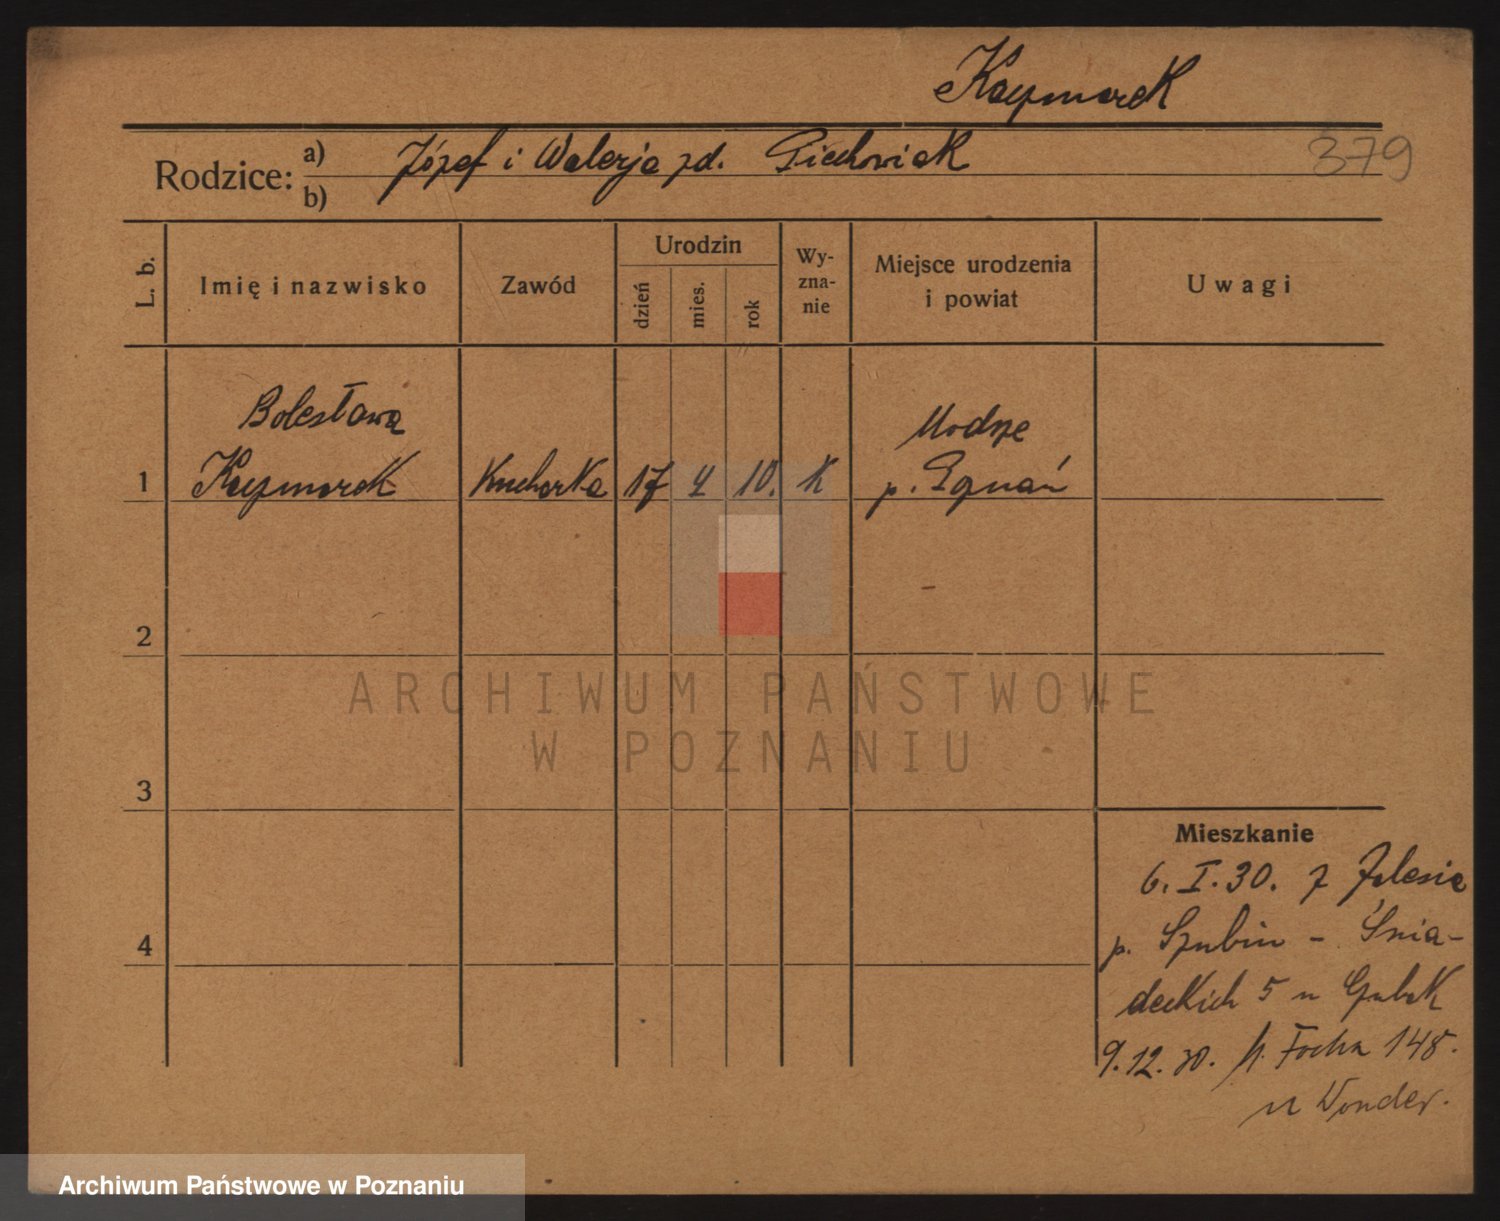 Kaczmarek
Rodzice: a) Józef i Walerja zd. Piechowiak
b)
379
L. b. Imię i nazwisko Zawód Urodzin dzień mies. rok Wy-zna-nie Miejsce urodzenia i powiat Uwagi
Bolesława Modrze
1 Kaczmarek Kucharka 17 4 10. K p. Poznań
2
3
4
Mieszkanie
6. I. 30. z Zalesie
p. Szubin - Śnia-
deckich 5 u
9.12.30. M. Focha 148.
u Wonder.
ARCHIWUM PAŃSTWOWE
W POZNANIU
Archiwum Państwowe w Poznaniu